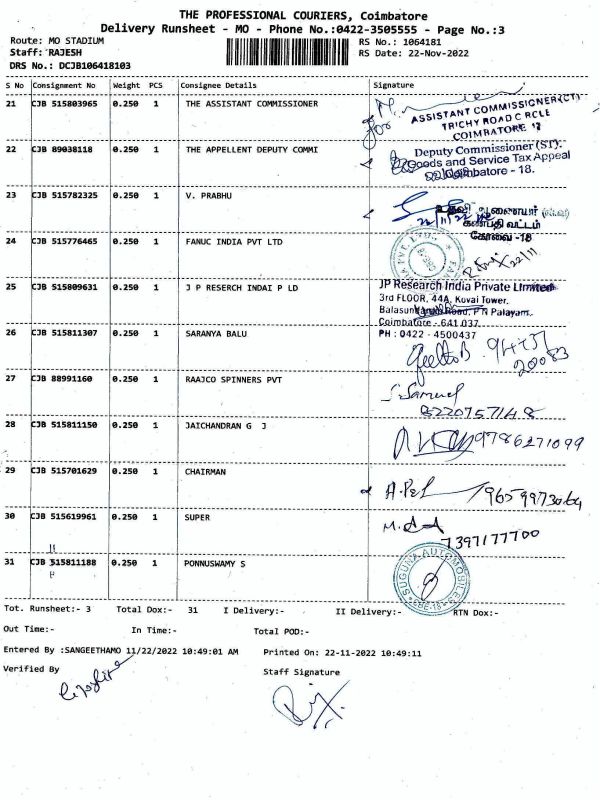 THE PROFESSIONAL COURIERS, Coimbatore
Delivery Runsheet - MO - Phone No.:0422-3505555 - Page No.:3
Route: MO STADIUM
RS No.: 1064181
Staff: RAJESH
RS Date: 22-Nov-2022
DRS No.: DCJB106418103
S No Consignment No Weight PCS Consignee Details Signature
21 CJB 515803965 0.250 1 THE ASSISTANT COMMISSIONER
for
ASSISTANT COMMISSIONER(CT)
TRICHY ROAD CIRCLE
COIMBATORE
22 CJB 89038118 0.250 1 THE APPELLENT DEPUTY COMMI
Deputy Commissioner (ST).
Goods and Service Tax Appeal
Coimbatore - 18.
23 CJB 515782325 0.250 1 V. PRABHU
22/11/22
உதவி ஆணையர்
கணபதி வட்டம்
கோவை -18
24 CJB 515776465 0.250 1 FANUC INDIA PVT LTD
22/11
25 CJB 515809631 0.250 1 J P RESERCH INDAI P LD
JP Research India Private Limited
3rd FLOOR, 44A, Kovai Tower,
Balasundaram Road, P N Palayam,
Coimbatore - 641 037.
PH : 0422 - 4500437
26 CJB 515811307 0.250 1 SARANYA BALU
20083
27 CJB 88991160 0.250 1 RAAJCO SPINNERS PVT
S. Samuel
8220757148
28 CJB 515811150 0.250 1 JAICHANDRAN G J
9786271099
29 CJB 515701629 0.250 1 CHAIRMAN
9659973064
30 CJB 515619961 0.250 1 SUPER
7397177700
31 CJB 515811188 0.250 1 PONNUSWAMY S
SUGUNA AUTOMOBILES
CBE-18
Tot. Runsheet:- 3 Total Dox:- 31 I Delivery:- II Delivery:- RTN Dox:-
Out Time:- In Time:- Total POD:-
Entered By :SANGEETHAMO 11/22/2022 10:49:01 AM Printed On: 22-11-2022 10:49:11
Verified By Staff Signature